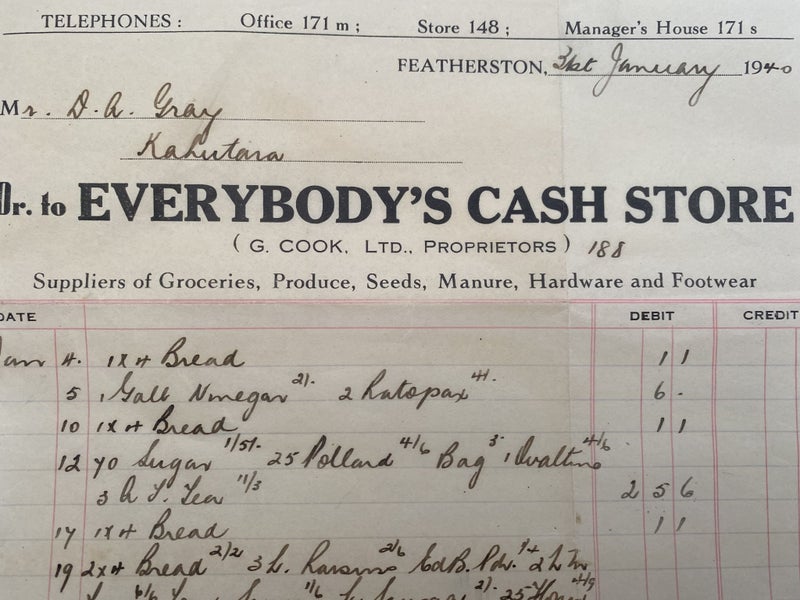 TELEPHONES: Office 171 m; Store 148; Manager's House 171 s
FEATHERSTON, 31st January 1940
Mr. D. A. Gray
Kahutara
Dr. to EVERYBODY'S CASH STORE
(G. COOK, LTD., PROPRIETORS) 188
Suppliers of Groceries, Produce, Seeds, Manure, Hardware and Footwear
DATE DEBIT CREDIT
Jan 4. 1x4 Bread 1 1
5 1 Gall Vinegar 2/. 2 Ratopax 4/. 6 .
10 1x4 Bread 1 1
12 70 Sugar 25 Pollard 4/6 Bag 3. 1 Ovaltine 4/6
3 Tea 11/3 2 5 6
17 1x4 Bread 1 1
19 2x4 Bread 2/2 3 L. Raisins 2/6 Ed B. Pdr.
1/6 2/. 25